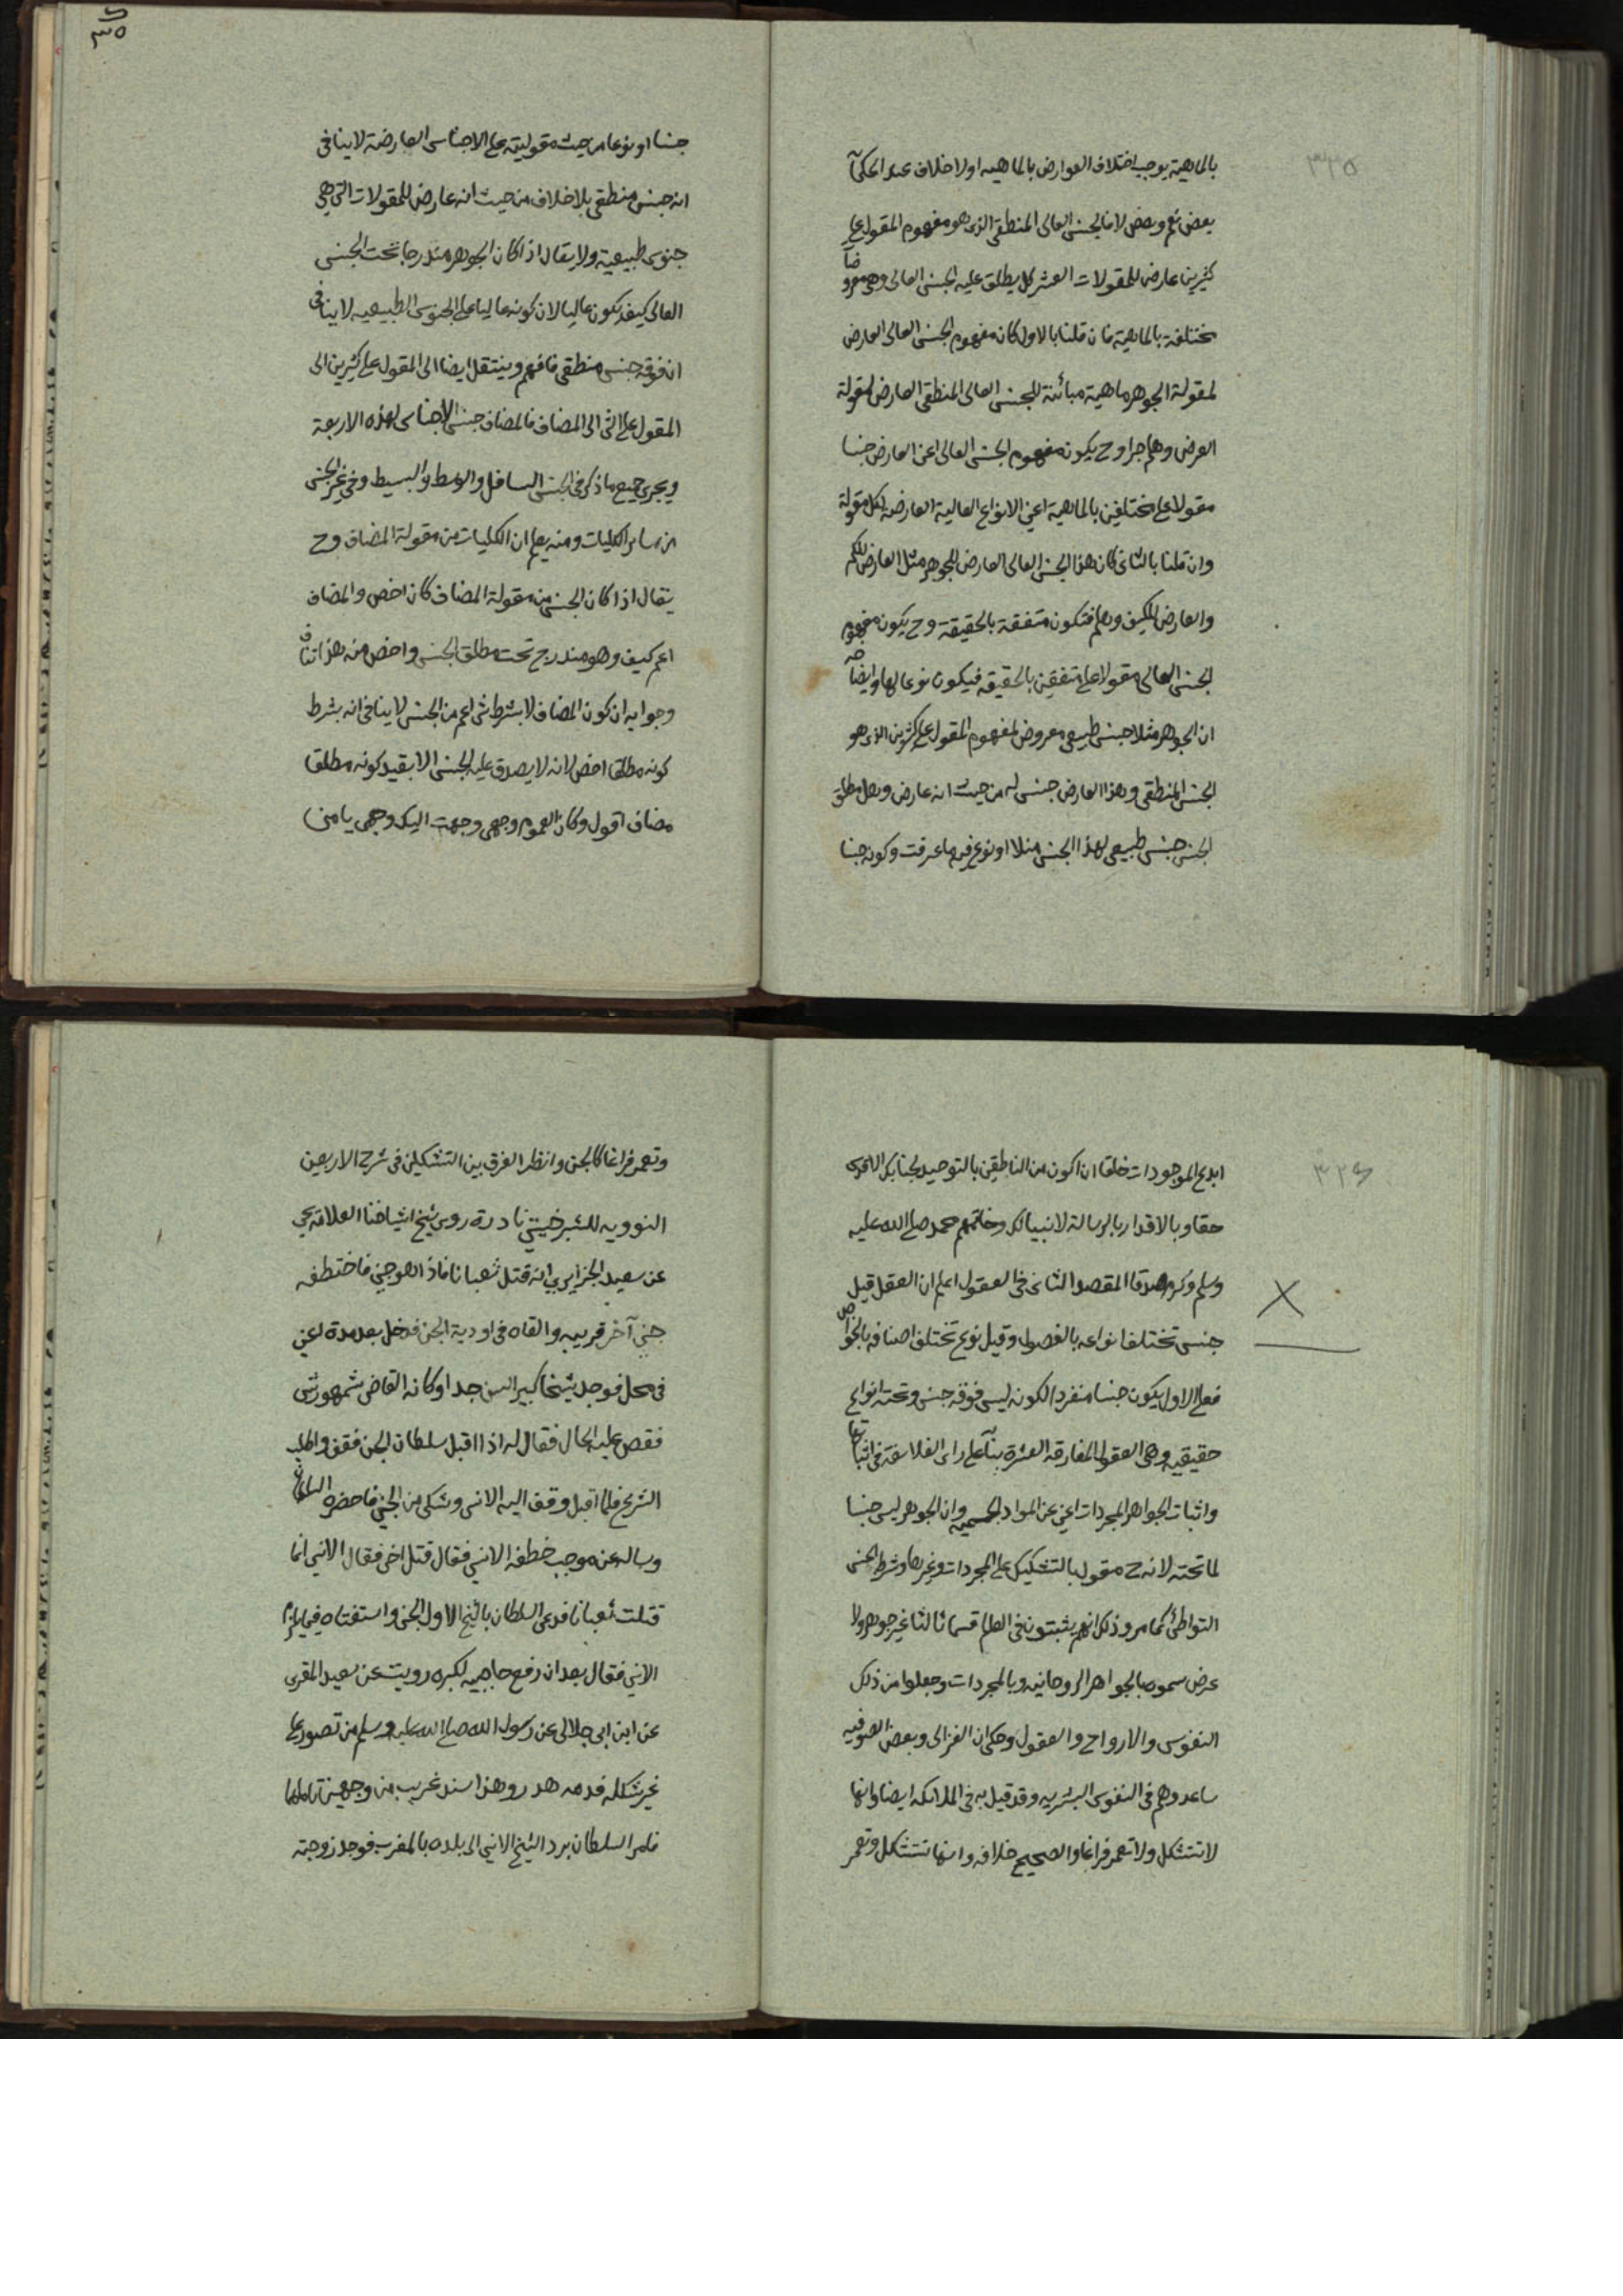 ٣٣٥
بالماهية يوجب اختلاف العوارض بالماهيه اولا خلاف عند الحكمآ
بعض نعم وبعض لا فالجنس العالى المنطقى الذى هو مفهوم المقول على
كثيرين عارض للمقولات العشر كل يطلق عليه الجنس العالى وهى معروضآ
مختلفة بالماهية فان قلنا بالاول كان مفهوم الجنس العالى العارض
لمقولة الجوهر ماهية مبائنة للجنس العالى المنطقى العارض لمقولة
العرض وهلم جرا وح يكون مفهوم الجنس العالى اعنى العارض جنسا
مقولا على مختلفين بالماهية اعنى الانواع العالية العارضة لكل مقولة
وان قلنا بالثانى كان هذا الجنس العالى العارض للجوهر مثل العارض للكم
والعارض للكيف وهلم فتكون متفقة بالحقيقة وح يكون مفهوم
الجنس العالى مقولا على متفقين بالحقيقه فيكون نوعا لها وايضا
ان الجوهر مثلا جنس طبيعى معروض لمفهوم المقول على كثيرين الذى هو
الجنس المنطقى وهذا العارض جنس له من حيث انه عارض وهل مطلق
الجنس جنس طبيعى لهذا الجنس مثلا او نوع فيه ما عرفت وكونه جنسا
٣٥
جنسا او نوعا من حيث مقوليته على الاجناس العارضة لا ينافى
انه جنس منطقى بلا خلاف من حيث انه عارض للمقولات التى هى
جنوس طبيعية ولا يقال اذا كان الجوهر مندرجا تحت الجنس
العالى كيف يكون عاليا لان كونه عاليا على الجنوس الطبيعيه لا ينافى
ان فوقه جنس منطقى فافهم وينتقل ايضا الى المقول على كثيرين الى
المقول على الشى الى المضاف فالمضاف جنس الاجناس لهذه الاربعة
ويجرى جميع ما ذكر فى الجنس السافل والوسط والبسيط وفى غير الجنس
من ساير الكليات ومنه يعلم ان الكليات من مقولة المضاف وح
يقال اذا كان الجنس من مقولة المضاف كان اخص والمضاف
اعم كيف وهو مندرج تحت مطلق الجنس واخص منه هذا تناف
وجوابه ان كون المضاف لا بشرط شى اعم من الجنس لا ينافى انه بشرط
كونه مطلقا اخص لانه لا يصدق عليه الجنس الا بقيد كونه مطلقا
مضاف اقول وكان العموم وجهى وجهت اليك وجهى يا من
٣٣٦
ابدع الموجودات خلقا ان اكون من الناطقين بالتوحيد لجنابك الاقدس
حقا وبالاقرار بالرسالة لانبيائك وخاتمهم محمد صلى الله عليه
وسلم وكرم صدقا المقصد الثانى فى العقول اعلم ان العقل قيل
جنس تختلف انواعه بالفصول وقيل نوع تختلف اصنافه بالخواص
فعلى الاول يكون جنسا منفردا لكونه ليس فوقه جنس وتحته انواع
حقيقيه وهى العقول المفارقه العشرة بنآ على راى الفلاسفة فى اثباتها
واثبات الجواهر المجردات اعنى عن المواد الجسميه وان الجوهر ليس جنسا
لما تحته لانه ح مقول بالتشكيك على المجردات وغيرها وشرط الجنس
التواطئ كما مر وذلك انهم يثبتون فى العالم قسما ثالثا غير جوهر ولا
عرض سموه بالجواهر الروحانيه وبالمجردات وجعلوا من ذلك
النفوس والارواح والعقول وحكى ان الغزالى وبعض الصوفيه
ساعدوهم فى النفوس البشريه وقد قيل به فى الملائكه ايضا وانها
لا تتشكل ولا تعمر فراغا والصحيح خلافه وانها تتشكل وتعمر
وتعمر فراغا كالجن وانظر الفرق بين التشكلين فى شرح الاربعين
النوويه للشبرخيتى نادرة روى شيخ اشياخنا العلامة يحيى
عن سعيد الجزايرى انه قتل ثعبانا فاذا هو جنى فاختطفه
جنى آخر قريبه والقاه فى اودية الجن فدخل بعد مدة اعنى
فى محل فوجد شيخا كبير السن جدا وكانه القاضى شمهورش
فقص عليه الحال فقال له اذا اقبل سلطان الجن فقف واطلب
الشرع فلما اقبل وقف اليه الانسى وشكى من الجنى فاحضره السلطان
وساله عن موجب خطفه الانسى فقال قتل اخى فقال الانسى انما
قتلت ثعبانا فدعى السلطان بالشيخ الاول الجنى واستفتاه فيما يلزم
الانسى فقال بعد ان رفع حاجبيه لكبره رويت عن سعيد المقرى
عن ابن ابى جلالى عن رسول الله صلى الله عليه وسلم من تصور على
غير شكله فدمه هدر وهذا سند غريب من وجهين تاملهما
فامر السلطان برد الشيخ الانسى الى بلده بالمغرب فوجد زوجته